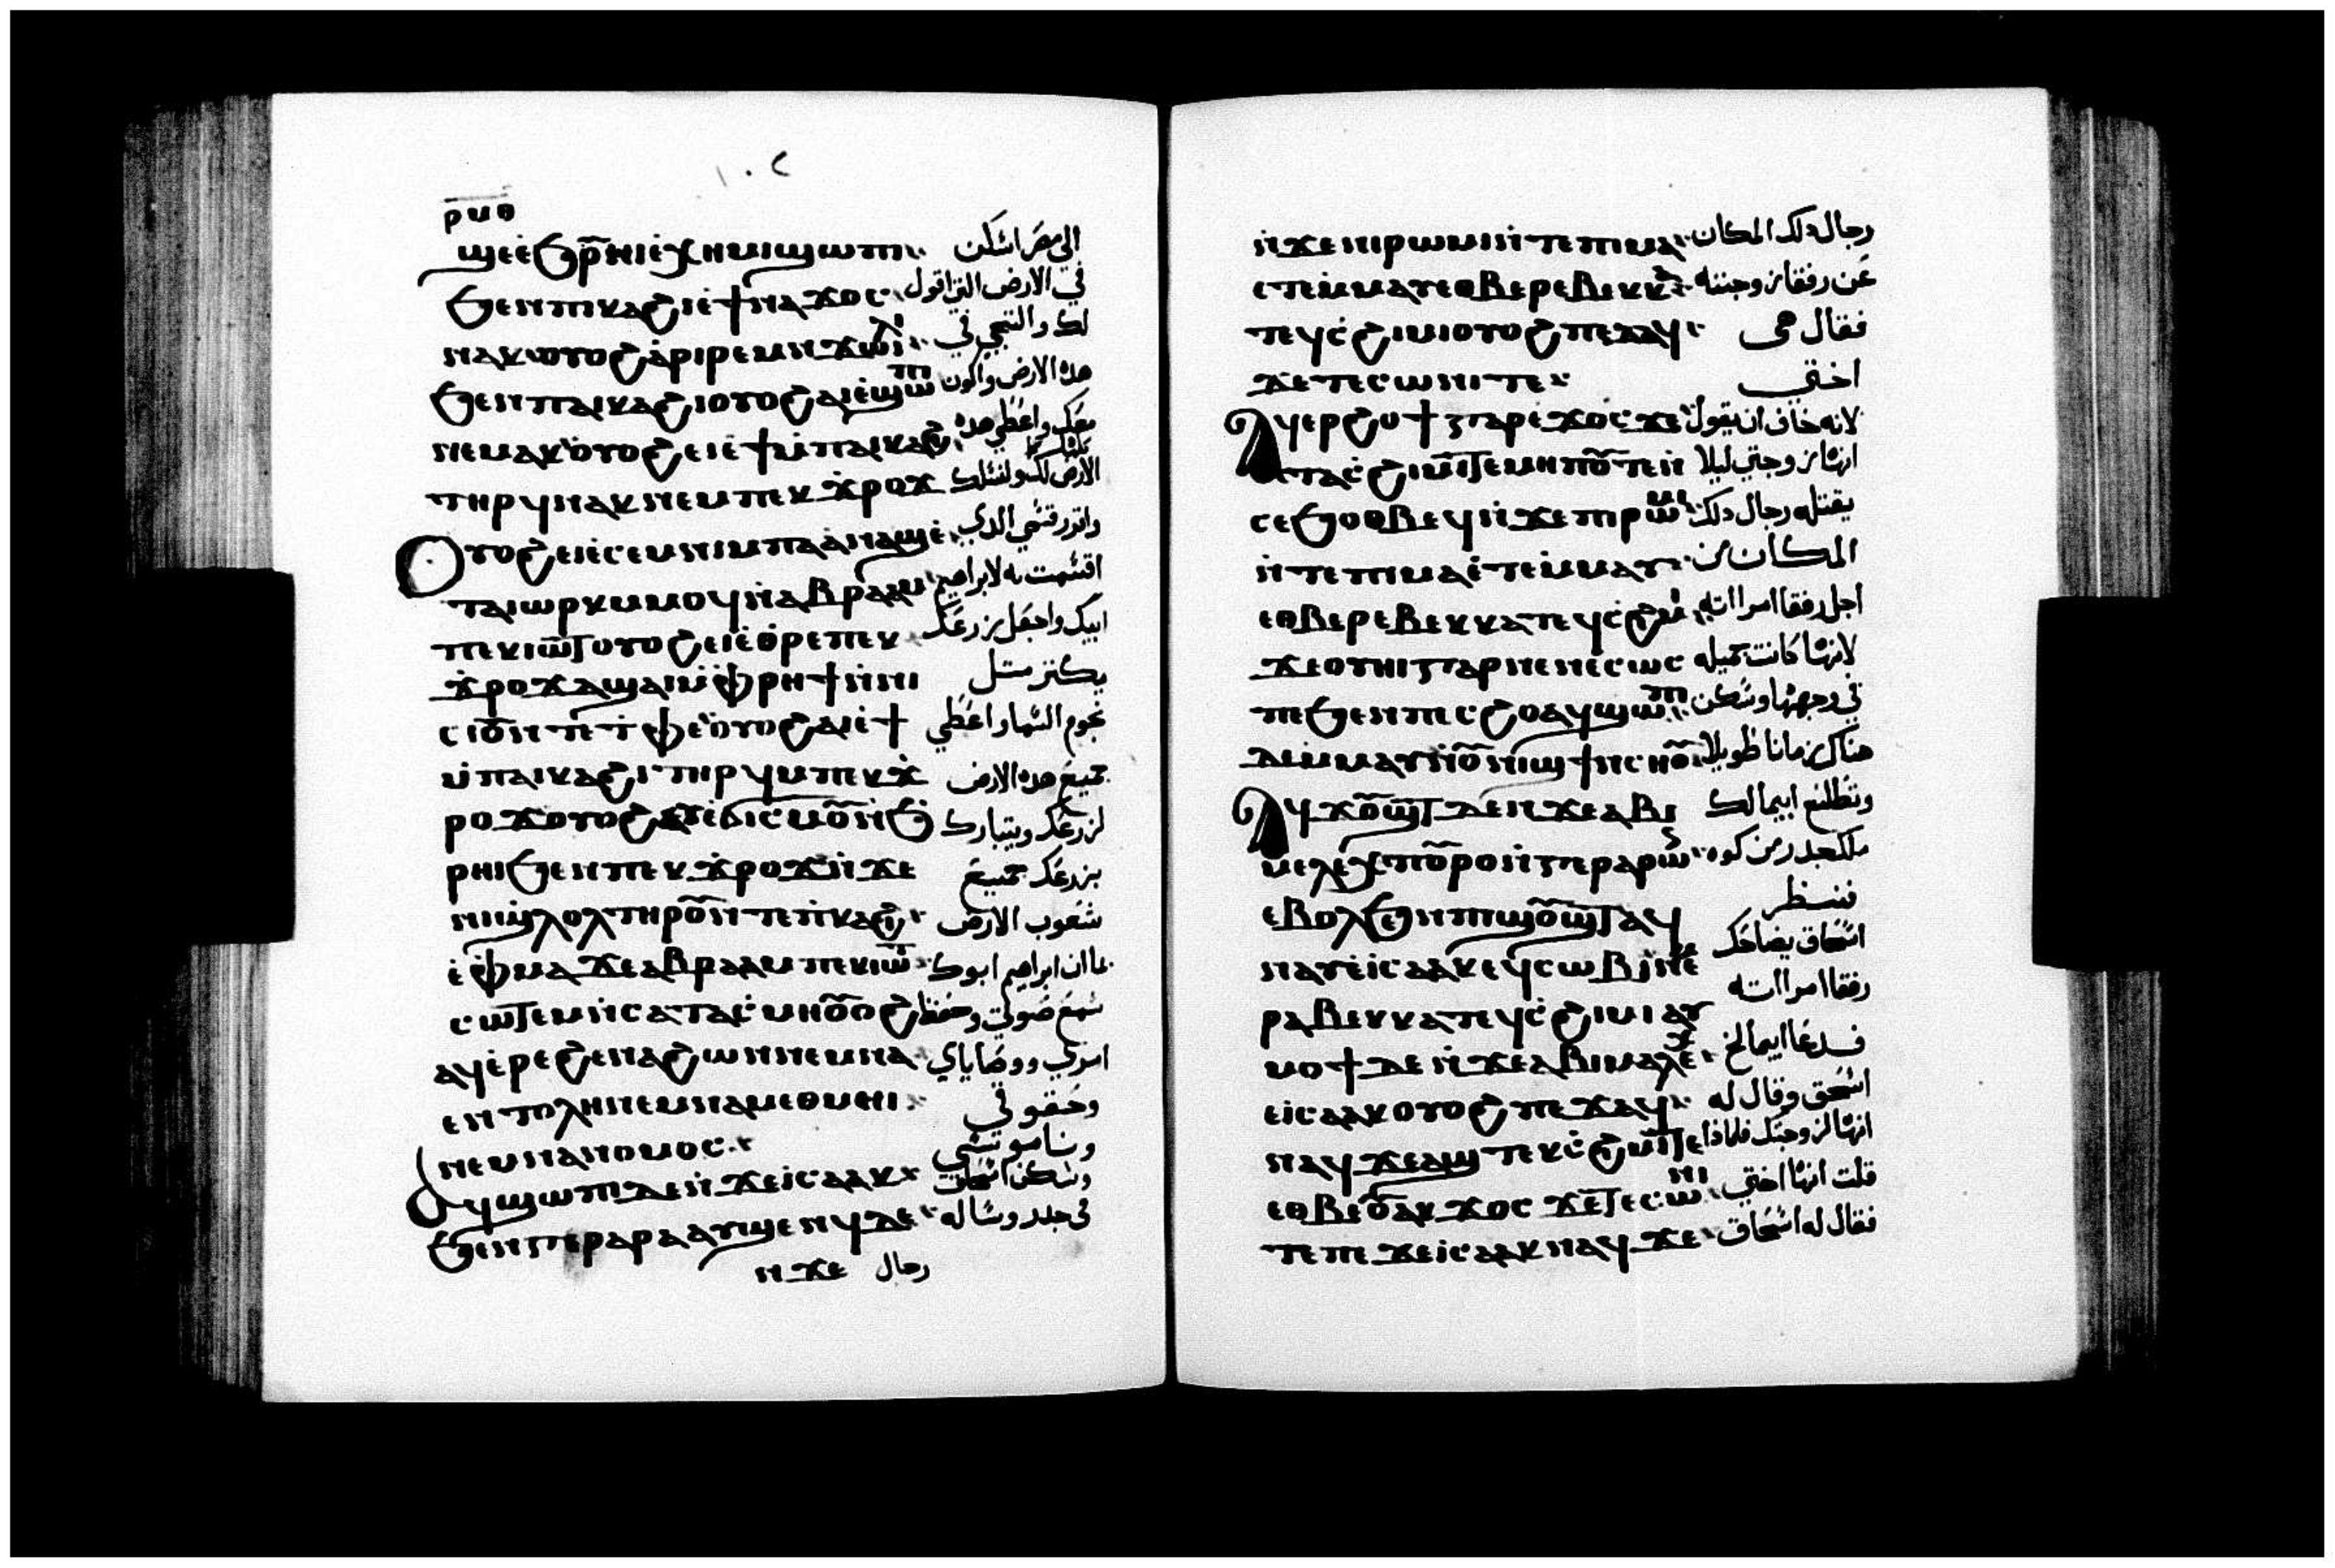 ١٠٢
ⲣⲙⲑ
ϣⲉⲉ̀ϧⲣⲏⲓⲉ̀ⲭⲏⲙⲓϣⲱⲡⲓ الى مصر اسكن
ϧⲉⲛⲡⲓⲕⲁϩⲓⲉ̀ϯⲛⲁϫⲟⲥ في الارض التي اقول
ⲛⲁⲕⲟⲩⲟϩⲁ̀ⲣⲓⲣⲉⲙⲛ̀ϫⲱⲓⲗⲓ لك والتجي في
ϧⲉⲛⲡⲁⲓⲕⲁϩⲓⲟⲩⲟϩⲁⲓⲉ̀ϣⲱⲡⲓ هذه الارض واكون
ⲛⲉⲙⲁⲕⲟⲩⲟϩⲉⲓⲉ̀ϯⲙ̀ⲡⲁⲓⲕⲁϩⲓ معك واعطي هذه
ⲧⲏⲣϥⲛⲁⲕⲛⲉⲙⲡⲉⲕϫⲣⲟϫ الارض لك ولنسلك
Ⲟⲩⲟϩⲉⲓⲉ̀ⲥⲉⲙⲛⲓⲙ̀ⲡⲁⲁ̀ⲛⲁϣ ⲉ̀ واقرر قسمي الدي
ⲧⲁⲓⲱⲣⲕⲙ̀ⲙⲟϥⲛ̀ⲁⲃⲣⲁⲁⲙ اقسمت به لابراهيم
ⲡⲉⲕⲓⲱⲧⲟⲩⲟϩⲉⲓⲉ̀ⲑ̀ⲣⲉⲡⲉⲕ ابيك واجعل زرعك
ϫ̀ⲣⲟϫⲁϣⲁⲓⲙ̀ⲫ̀ⲣⲏϯⲛ̀ⲛⲓ يكثر مثل
ⲥⲓⲟⲩⲛ̀ⲧⲉⲧ̀ⲫⲉⲟⲩⲟϩⲁⲓⲉ̀ϯ نجوم السما واعطي
ⲙ̀ⲡⲁⲓⲕⲁϩⲓⲧⲏⲣϥⲙ̀ⲡⲉⲕϫ̀ جميع هده الارض
ⲣⲟϫⲟⲩⲟϩⲉⲩⲉ̀ϭⲓⲥⲙⲟⲩⲛ̀ϧ̀ لزرعك ويتبارك
ⲣⲏⲓϧⲉⲛⲡⲉⲕϫ̀ⲣⲟϫⲛ̀ϫⲉ بزرعك جميع
ⲛⲓϣ̀ⲗⲟⲗⲧⲏⲣⲟⲩⲛ̀ⲧⲉⲡ̀ⲕⲁϩⲓ شعوب الارض
ⲉ̀ⲫ̀ⲙⲁϫⲉⲁⲃⲣⲁⲁⲙⲡⲉⲕⲓⲱⲧ بما ان ابراهيم ابوك
ⲥⲱⲧⲉⲙⲛ̀ⲥⲁⲧⲁⲥ̀ⲙⲏⲟⲩⲟϩ سمع صوتي وحفظ
ⲁϥⲉ̀ⲣⲉϩⲉⲛⲁϩⲱⲛⲛⲉⲙⲛⲁ اموري ووصاياي
ⲉⲛⲧⲟⲗⲏⲛⲉⲙⲛⲁⲙⲉⲑⲙⲏⲓ وحقوقي
ⲛⲉⲙⲛⲁⲛⲟⲙⲟⲥ وناموسي
Ⲁϥϣⲱⲡⲓⲇⲉⲛ̀ϫⲉⲓⲥⲁⲁⲕ وسكن اسحاق
ϧⲉⲛⲅⲉⲣⲁⲣⲁⲁⲩϣⲉⲛϥⲇⲉ في جلدر وساله
ⲛϫⲉ رجال
ⲛ̀ϫⲉⲛⲓⲣⲱⲙⲓⲛ̀ⲧⲉⲡⲓⲙⲁ رجال دلك المكان
ⲉⲧⲉⲙ̀ⲙⲁⲩⲉⲑⲃⲉⲣⲉⲃⲉⲕⲕⲁ عن رفقا زوجته
ⲧⲉϥⲥ̀ϩⲓⲙⲓⲟⲩⲟϩⲡⲉϫⲁϥ فقال هى
ϫⲉⲧⲉⲥⲱⲛⲓⲧⲉ اختي
Ⲁϥⲉⲣϩⲟϯⲅⲁⲣⲉ̀ϫⲟⲥϫⲉ لانه خاف ان يقول
ⲧⲁⲥ̀ϩⲓⲙⲓⲧⲉⲙⲏⲡⲟⲩⲧⲉⲛ̀ انها زوجتي ليلا
ⲥⲉϧⲟⲑⲃⲉϥⲛ̀ϫⲉⲛⲓⲣⲱⲙⲓ يقتله رجال دلك
ⲛ̀ⲧⲉⲡⲓⲙⲁⲉ̀ⲧⲉⲙ̀ⲙⲁⲩ المكان من
ⲉⲑⲃⲉⲣⲉⲃⲉⲕⲕⲁⲧⲉϥⲥ̀ϩⲓⲙⲓ اجل رفقا امراته
ϫⲉⲟⲩⲏⲓⲅⲁⲣⲛⲉⲛⲉ̀ⲥⲱⲥ لانها كانت جميله
ⲡⲉϧⲉⲛⲡⲉⲥϩⲟⲁϥϣⲱⲡⲓ في وجهها وسكن
ⲇⲉⲙ̀ⲙⲁⲩⲛ̀ⲟⲩⲛⲓϣϯⲛ̀ⲥⲏⲟⲩ هناك زمانا طويلا
Ⲁϥϫⲟⲩϣⲧⲇⲉⲛ̀ϫⲉⲁⲃⲓ وتطلع ابيمالك
ⲙⲉⲗⲉⲭⲡⲟⲩⲣⲟⲛ̀ⲅⲉⲣⲁⲣⲱⲥ ملك جدر من كوه
ⲉⲃⲟⲗϧⲉⲛⲡⲓϣⲟⲩϣⲧⲁϥ فنظر
ⲛⲁⲩⲉ̀ⲓⲥⲁⲁⲕⲉϥⲥⲱⲃⲓⲛⲉⲙ اسحاق يضاحك
ⲣⲁⲃⲉⲕⲕⲁⲧⲉϥⲥ̀ϩⲓⲙⲓⲁϥ رفقا امراته
ⲙⲟϯⲇⲉⲛ̀ϫⲉⲁⲃⲓⲙⲁⲗⲉⲭ فدعا ابيمالخ
ⲉ̀ⲓⲥⲁⲁⲕⲟⲩⲟϩⲡⲉϫⲁϥ اسحق وقال له
ⲛⲁϥϫⲉⲁϣⲧⲉⲕⲥ̀ϩⲓⲙⲓⲧⲉ انها لزوجتك فلماذا
ⲉⲑⲃⲉⲟⲩⲁⲕϫⲟⲥϫⲉⲧⲉⲥⲱⲛⲓ قلت انها اختي
ⲧⲉⲡⲉϫⲉⲓⲥⲁⲁⲕⲛⲁϥϫⲉ فقال له اسحاق